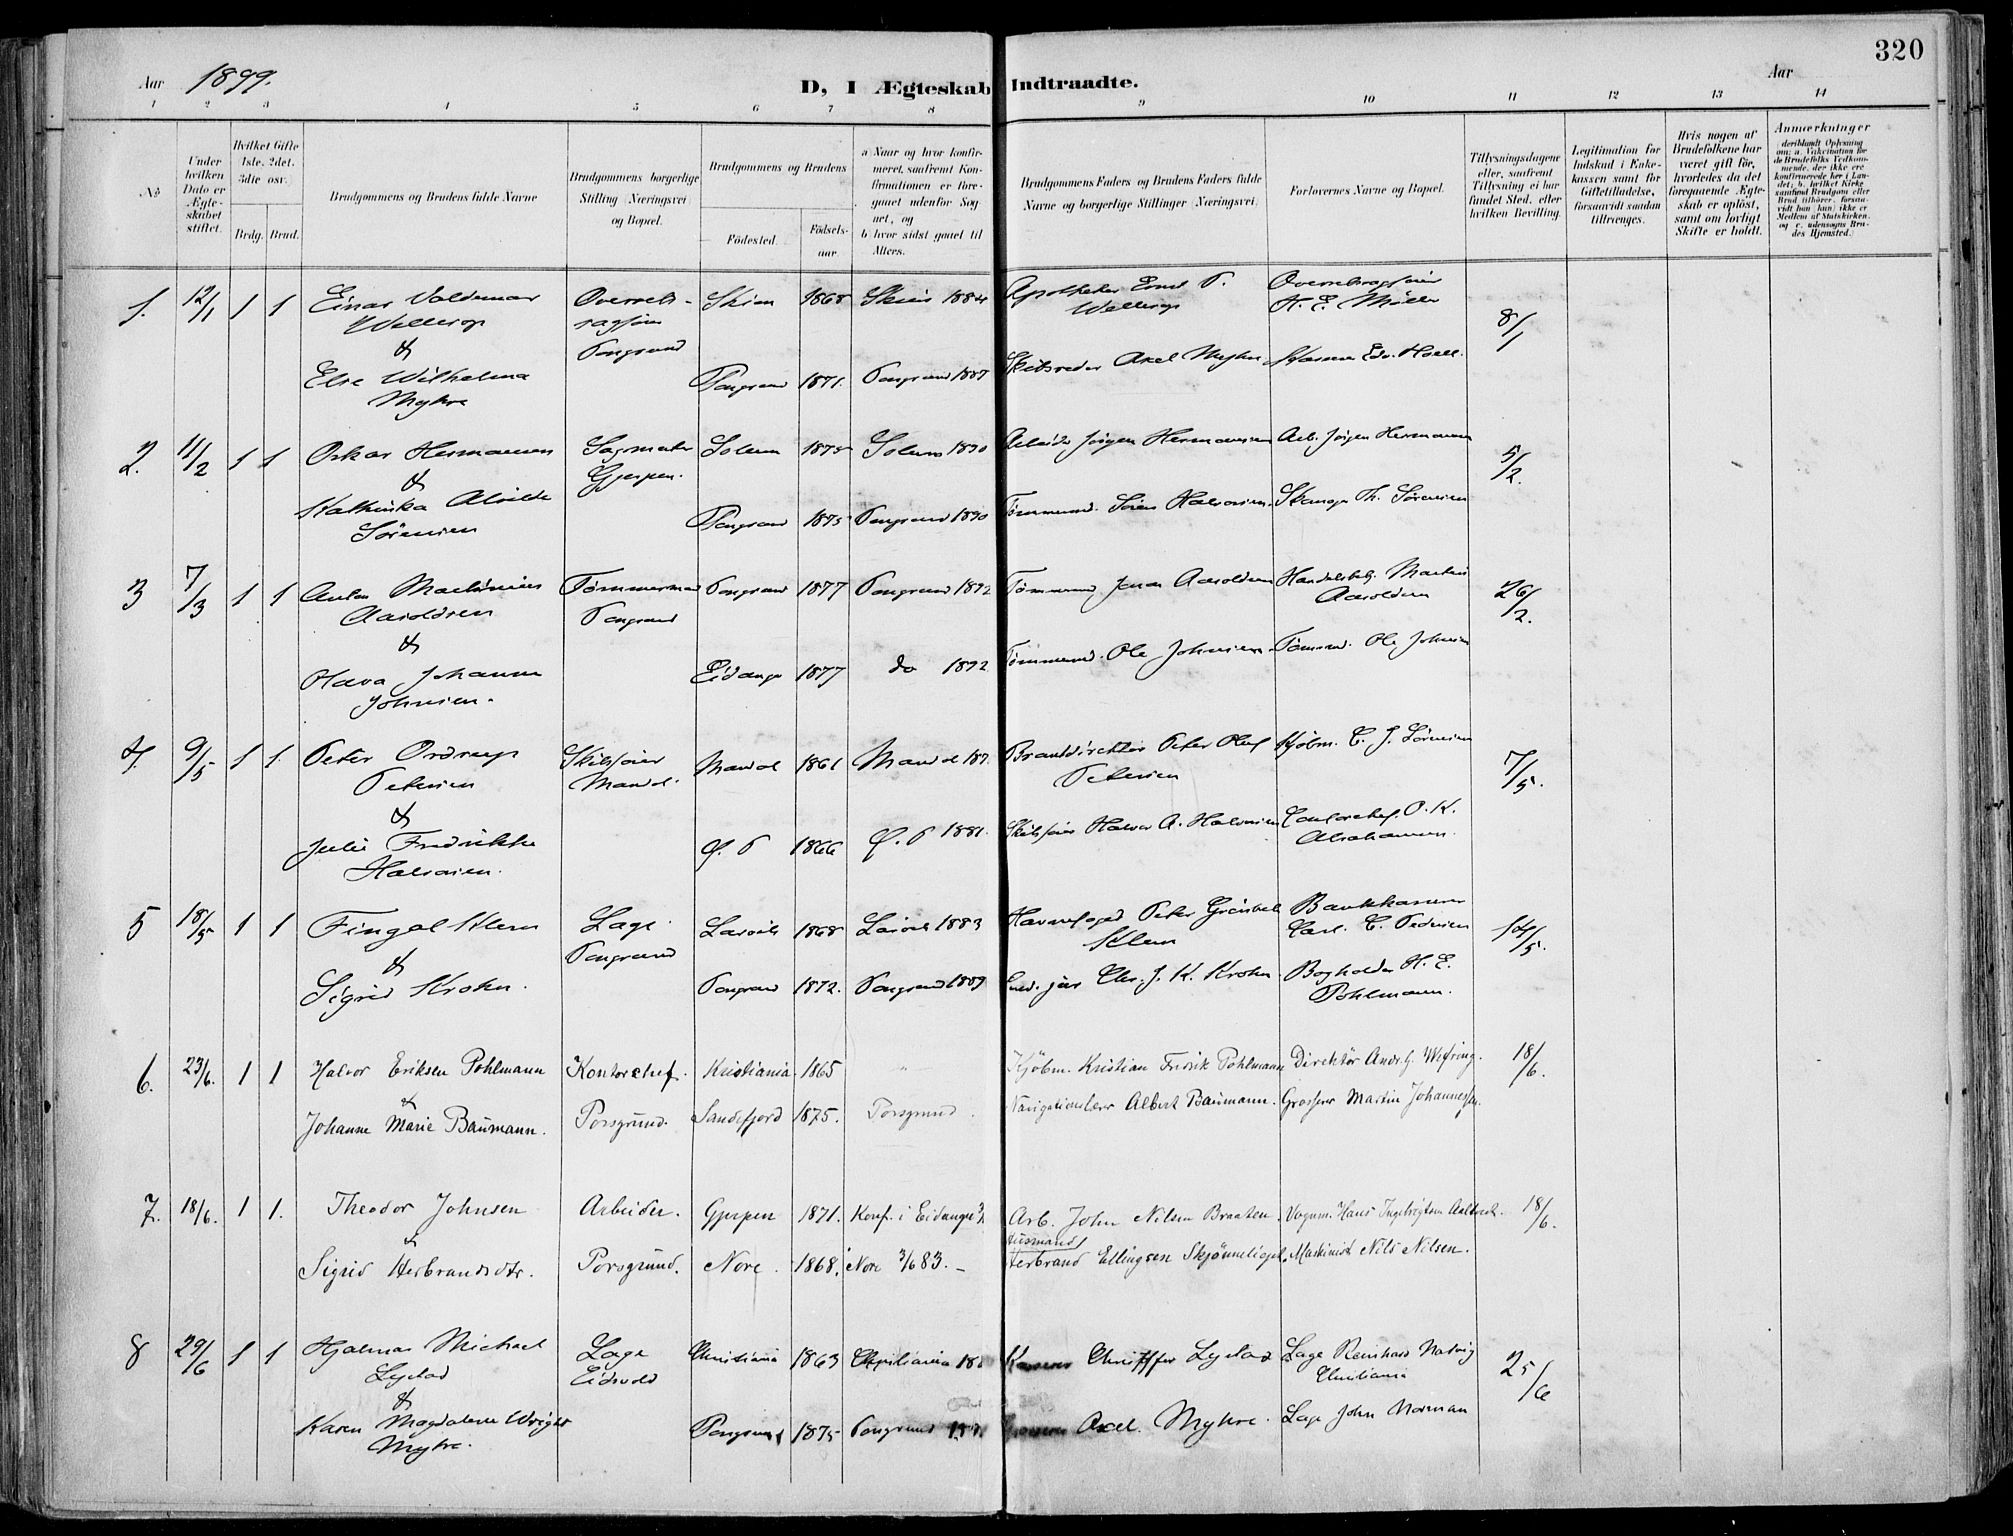 320
Aar 1899. D, I Ægteskab Indtraadte. Aar
1 2 3 4 5 6 7 8 9 10 11 12 13 14
No
Under hvilken Dato er Ægteskabet stiftet.
Hvilket Gifte 1ste, 2det, 3die osv.
Brdg. Brud.
Brudgommens og Brudens fulde Navne
Brudgommens borgerlige Stilling (Næringsvei) og Bopæl.
Brudgommens og Brudens
Födested. Födselsaar.
a) Naar og hvor konfirmeret, saafremt Konfirmationen er foregaaet udenfor Sognet, og
b) hvor sidst gaaet til Alters.
Brudgommens Faders og Brudens Faders fulde Navne og borgerlige Stillinger (Næringsvei)
Forlovernes Navne og Bopæl.
Tillysningsdagene eller, saafremt Tillysning ei har fundet Sted, efter hvilken Bevilling.
Legitimation for Indskud i Enkekassen samt for Giftetilladelse, forsaavidt saadan tiltrænges.
Hvis nogen af Brudefolkene har været gift för, hvorledes da det foregaaende Ægteskab er oplöst, samt om lovligt Skifte er holdt.
Anmærkninger
deriblandt Oplysning om: a. Vakcination for de Brudefolks Vedkommende, der ikke ere konfirmerede her i Landet; b. hvilket Kirkesamfund Brudgom eller Brud tilhörer, forsaavidt han (hun) ikke er Medlem af Statskirken, og c. udensogns Brudes Hjemsted.
1. 12/1 1 1 Einar Valdemar Skien 1868 Skien 1884 Apotheker Ernst P. Overretssagfører
Wellerop Wellerop H. E. Møller 8/1
& Porsgrund
Else Wilhelmine Porsgrund 1871. Porsgrund 1887 Skibsreder Axel Myhre Edv. Hoell.
Myhre
2. 11/2 1 1 Oskar Hermansen Solum 1875 Solum 1890 Arbeider Jørgen Hermansen Arb. Jørgen Hermansen 5/2.
& Gjerpen.
Kathinka Alvilde Porsgrund 1875 Porsgrund 1890 Tømmermd. Søren Halvorsen Th. Sørensen
Sörensen
3 7/3 1 1 Anton Martinius Tømmermand Porsgrund 1877 Porsgrund 1892 Tømmermd Aaroldsen Handelsbetj. Martin 26/2.
Aaroldsen Porsgrund Aaroldsen
&
Olava Johanne Eidanger 1877 do 1892 Tømmermd. Ole Johnsen Tømmermd. Ole Johnsen
Johnsen.
4. 9/5 1 1 Peter Ordrup Skibsfører Mandal 1861 Mandal Branddirektør Peter Olaf Kjöbm. C. J. Sørensen 7/5.
Petersen Mandal. Petersen
&
Julie Fredrikke Ø. P 1866 Ø. P 1881. Skibsfører Halvor A. Halvorsen Contorchef O. K.
Halvorsen. Abrahamsen.
5 18/5 1 1 Fingal Klem Læge Larvik 1868 Larvik 1883 Havnefoged Peter Klem Bankkasserer 14/5.
& Porsgrund Carl. C. Pedersen
Sigrid Krohn. Porsgrund 1872. Porsgrund 1889 Chr. J. K. Krohn. Bogholder H. E.
Pohlmann.
6. 23/6. 1 1 Halvor Eriksen Pohlmann Kontorchef. Kristiania 1865 Kjöbm. Kristian Fredrik Pohlmann Direktör Andr. G. Wefring. 18/6.
&
Johanne Marie Baumann. Porsgrund. Sandefjord 1875. Porsgrund. Navigationslærer Albert Baumann. Grosserer Martin Johannessen.
7. 18/6. 1 1. Theodor Johnsen Arbeider. Gjerpen 1871. Konf. i Eidanger Arb. John Nilsen Braaten. Vognm. Hans Ingebrigtsen 18/6.
& Husmand
Sigrid Herbrandsdtr. Porsgrund. Nore. 1868. Nore 83. Herbrand Ellingsen Maskinist Nils Nilsen.
8 29/6 1 1 Hjalmar Michael Læge Christiania 1863 Christiania Christoffer Lystad Læge Reinhard Natvig 25/6
Lystad Eidsvold Christiania
&
Karen Magdalene Wright Porsgrund 1875 Porsgrund Axel Myhre. Læge John Norman
Myhre.